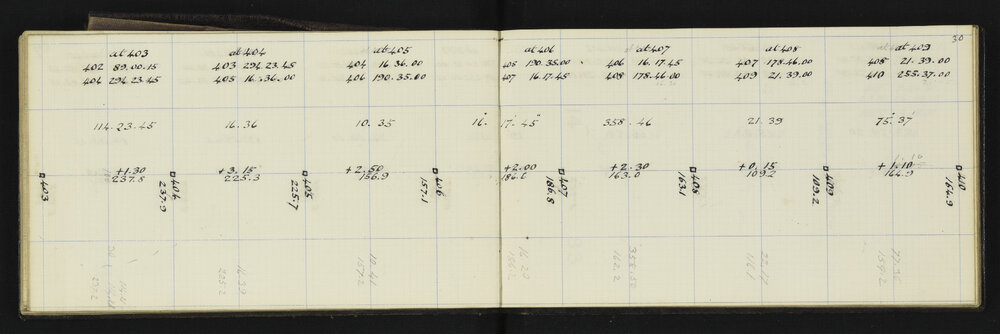 30
at 403
402 89.00.15
404 294.23.45
at 404
403 294.23.45
405 16.36.00
at 405
404 16.36.00
406 190.35.00
at 406
405 190.35.00
407 16.17.45
at 407
406 16.17.45
408 178.46.00
at 408
407 178.46.00
409 21.39.00
at 409
408 21.39.00
410 255.37.00
114.23.45
16.36
10.35
16. 17.45
358.46
21.39
75.37
+1.30
237.8
+3.15
225.3
+2.50
156.9
+2.00
186.6
+2.30
163.0
+0.15
109.2
+1.10
164.9
403
404
237.9
405
225.7
406
157.1
407
186.8
408
163.1
409
109.2
410
164.9
16.39
225.2
10.41
157.2
16.20